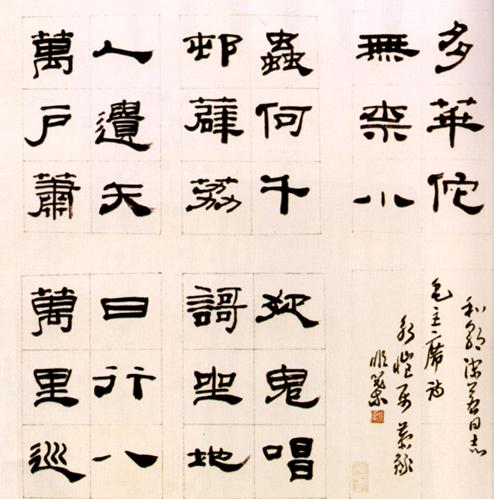 多華佗
無柰小
蟲何千
邨薜荔
人遺矢
萬戶蕭
疏鬼唱
謌坐地
日行八
萬里巡
同志
毛主席詩